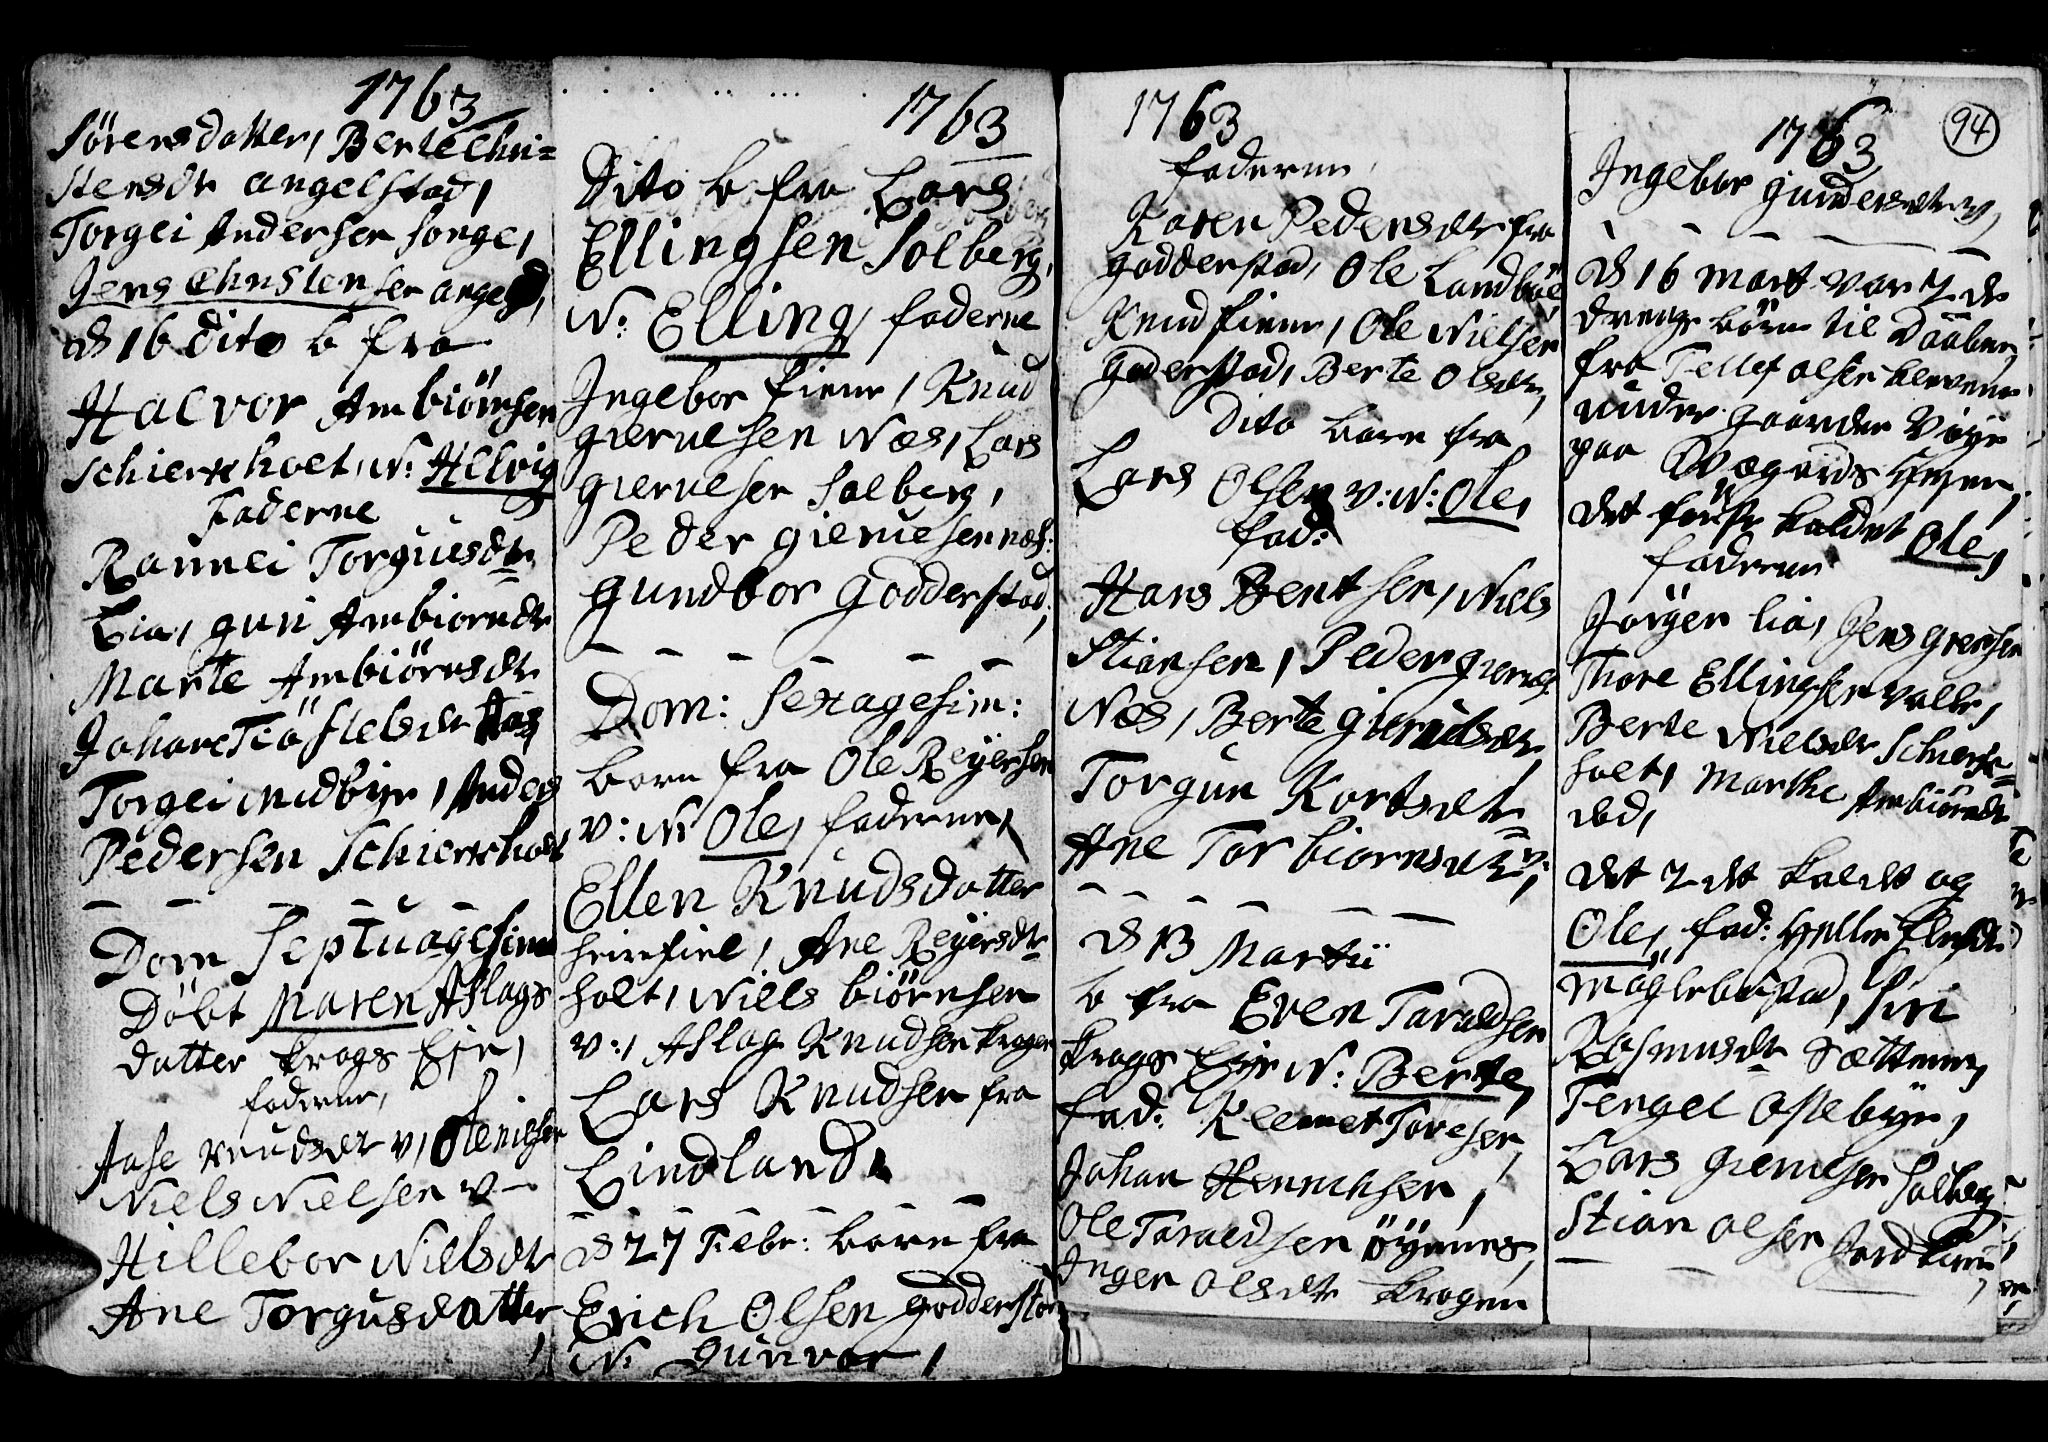 1763
Sörensdatter, Berte Chri=
stensdr angelstad,
Torgei Andersen songe,
Jens Christensen angelst,
d 16 dito b fra
Halvor Ambiörnsen
Schierkholt, N: Helvig
Faderne
Rannei Torgusdr
Lia, guri Ambiorndr
Marte Ambiörnsdr
Johane Tiöstelsdr
Torgei midbye, Anders
Pedersen Schierkholt
Dom Septuagesima
Döbt Maren Aslags
datter krogs Eje,
faderne,
Aase knudsdr v, Ole nielsen
Niels Nielsen v
Hillebor Nielsdr
Ane Torgusdatter,
1763
Dito b fra Lars
Ellingsen Solberg,
N: Elling, faderne
Ingebor fiene, Knud
gierulsen Næs, Lars
gierulsen Solberg,
Peder gierulsen næs:
gundbor godderstad,
Dom: Sexagesim:
barn fra Ole Reÿersen
v: N Ole, faderne,
Ellen Knudsdatter
, Ane Reÿersdr
holt, Niels biörnsen
v:, Aslag Knudsen krogen
Lars Knudsen fra
Lindland
d 27 Febr: barn fra
Erich Olsen godderstad
N: Gunvor,
1763
faderne,
Karen Pedersdr fra
godderstad, Ole Landböe
Knud fiene, Ole Nielsen
goderstad, Berte Olsdr,
Dito barn fra
Lars Olsen v: N: Ole,
fad:
Hans Bentsen, Niels
Stiansen, Peder gieruls
Næs, Berte gierulsdr
Torgun Kortsdr
Ane Torbiornsdr v:,
d 13 Martii
b fra Even Taraldsen
krogs Eje N: Berte,
fad: Klemet Toresen,
Johan Henrichsen,
Ole Taraldsen öÿenes,
Inger Olsdr krogen
1763
94
Ingebor gundersdr v,
d 16 Mart var 2 de
drenge börn til Daaben,
fra Tellef olsen klevene
under gaarden Vöÿe
paa
det förste kaldet Ole,
faderne
Jörgen lia, Jens
Thore Ellingsen valle,
Berte Nielsdr Schierk=
holt, Marthe Ambiörnsdr
ibd,
det 2 det kaldt og
Ole, fad:
Möglebustad, Siri
Rasmusdr Sættenes,
Tengel Ostebÿe,
Lars gierulsen Solberg
Stian olsen